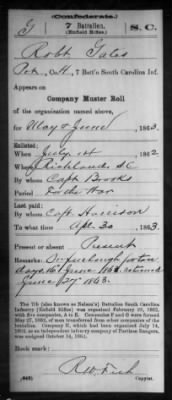 (Confederate.)
G 7 Battalion, S. C.
(Enfield Rifles.)
Robt Gales
Pvt, Co. H, 7 Batt'n South Carolina Inf.
Appears on
Company Muster Roll
of the organization named above,
for May & June, 1863.
Enlisted:
When July 1st 1862
Where Richland SC
By whom Capt Brooks
Period For the War
Last paid:
By whom Capt Harrison
To what time Apl 30, 1863.
Present or absent Present
Remarks: On furlough for ten
days 16 June 1863 returned
June 27 1863.
The 7th (also known as Nelson's) Battalion South Carolina
Infantry (Enfield Rifles) was organized February 22, 1862,
with five companies, A to E. Companies F and G were formed
May 22, 1862, of men transferred from other companies of the
battalion. Company H, which had been organized July 14,
1862, as an independent infantry company of Partisan Rangers,
was assigned October 14, 1862.
Book mark:
R W Fish
(642) Copyist.